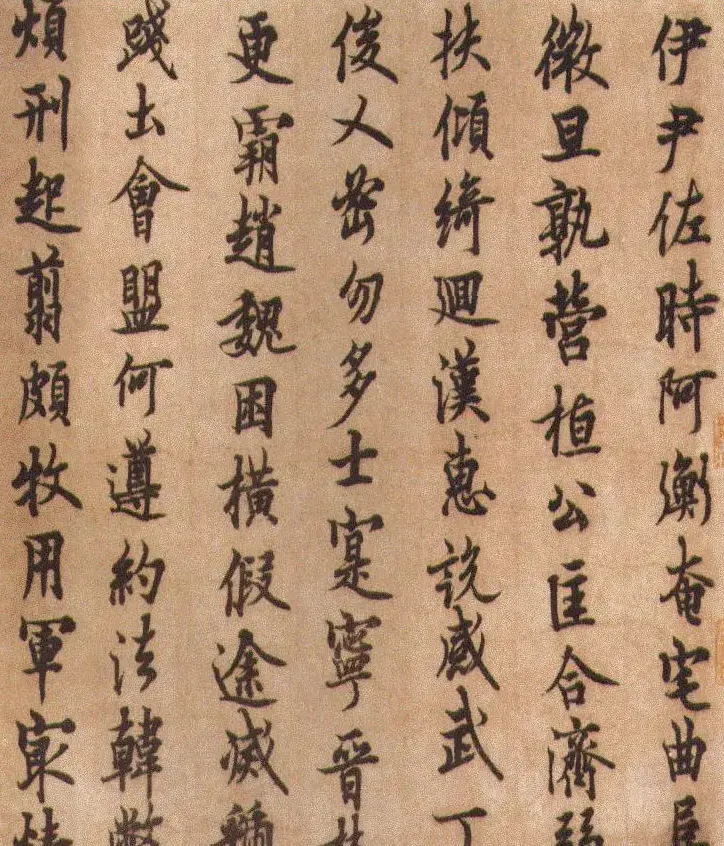 伊尹佐時阿衡奄宅曲阜
微旦孰營桓公匡合濟弱
扶傾綺迴漢惠說感武丁
俊乂密勿多士寔寧晉楚
更霸趙魏困橫假途滅虢
踐土會盟何遵約法韓弊
煩刑起翦頗牧用軍最精